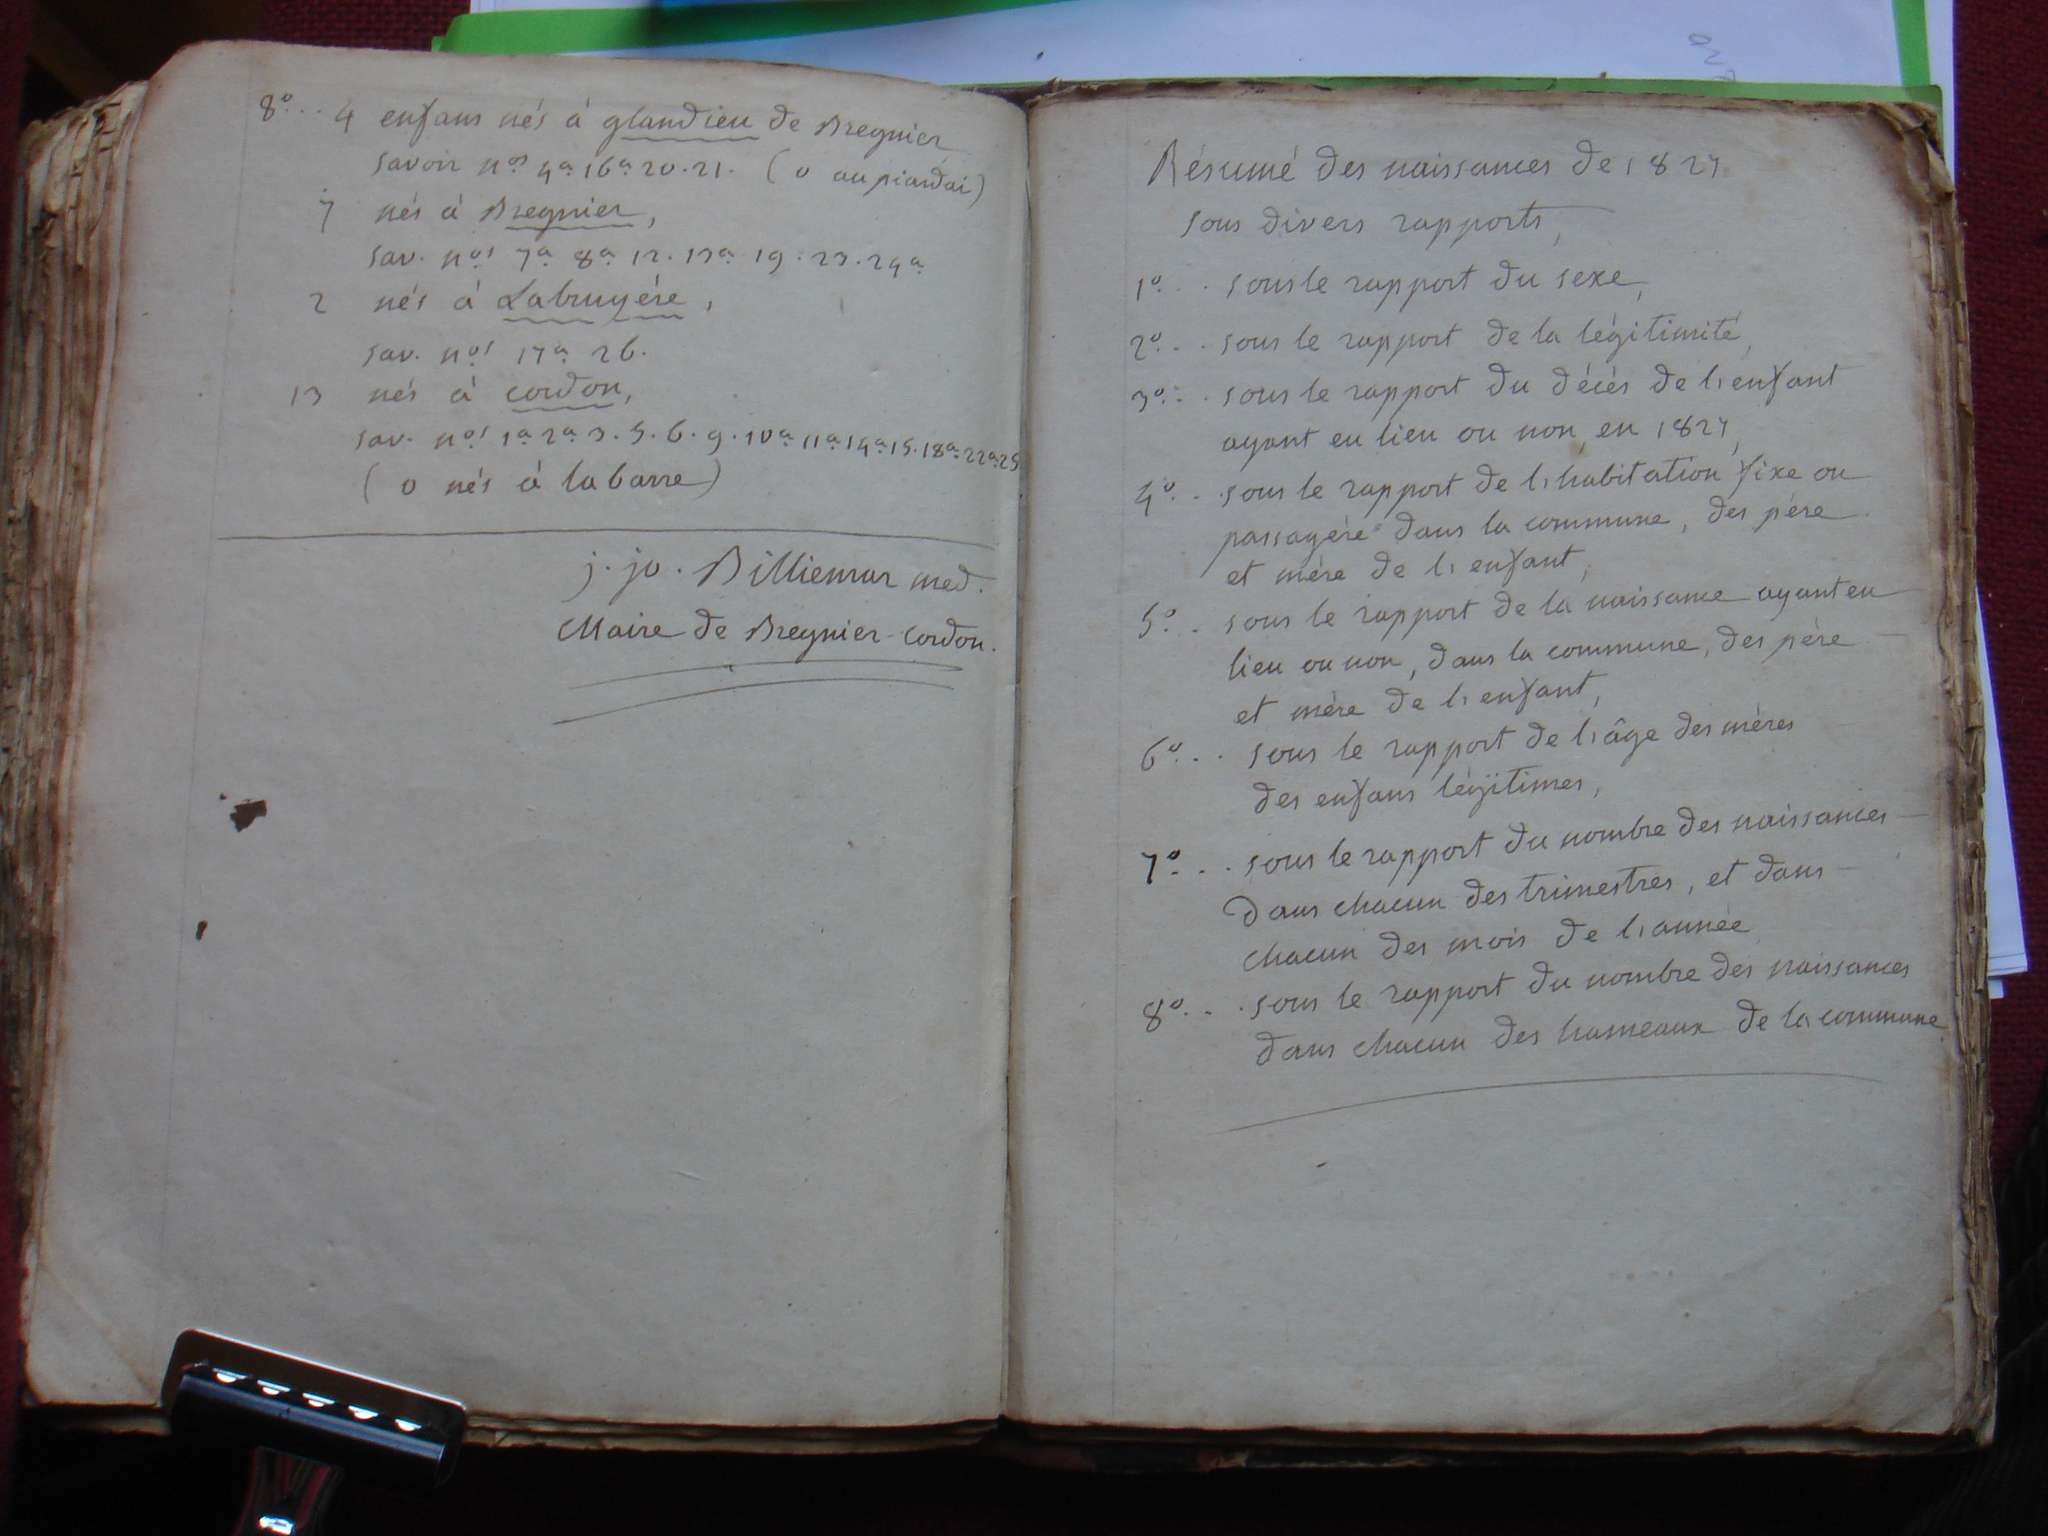 8º... 4 enfans nés à glandieu de Bregnier
savoir nºs 4ª. 16ª. 20. 21. (0 au piardai)
7 nés à Bregnier,
sav. nºs 7ª. 8ª. 12. 13ª. 19. 23. 24ª.
2 nés à Labruyére,
sav. nºs 17ª. 26.
13 nés à cordon,
sav. nºs 1ª. 2ª. 3. 5. 6. 9. 10ª. 11ª. 14ª. 15. 18ª. 22ª. 25
(0 nés à labarre)
j. jo. Billiemaz med.
Maire de Bregnier-Cordon.
Résumé des naissances de 1827
sous divers rapports,
1º... sous le rapport du sexe,
2º... sous le rapport de la légitimité,
3º... sous le rapport du décès de l'enfant
ayant eu lieu ou non, en 1827,
4º... sous le rapport de l'habitation fixe ou
passagére dans la commune, des pére
et mére de l'enfant,
5º... sous le rapport de la naissance ayant eu
lieu ou non, dans la commune, des pére
et mére de l'enfant,
6º... sous le rapport de l'âge des mères
des enfans légitimes,
7º... sous le rapport du nombre des naissances
dans chacun des trimestres, et dans
chacun des mois de l'année
8º... sous le rapport du nombre des naissances
dans chacun des hameaux de la commune